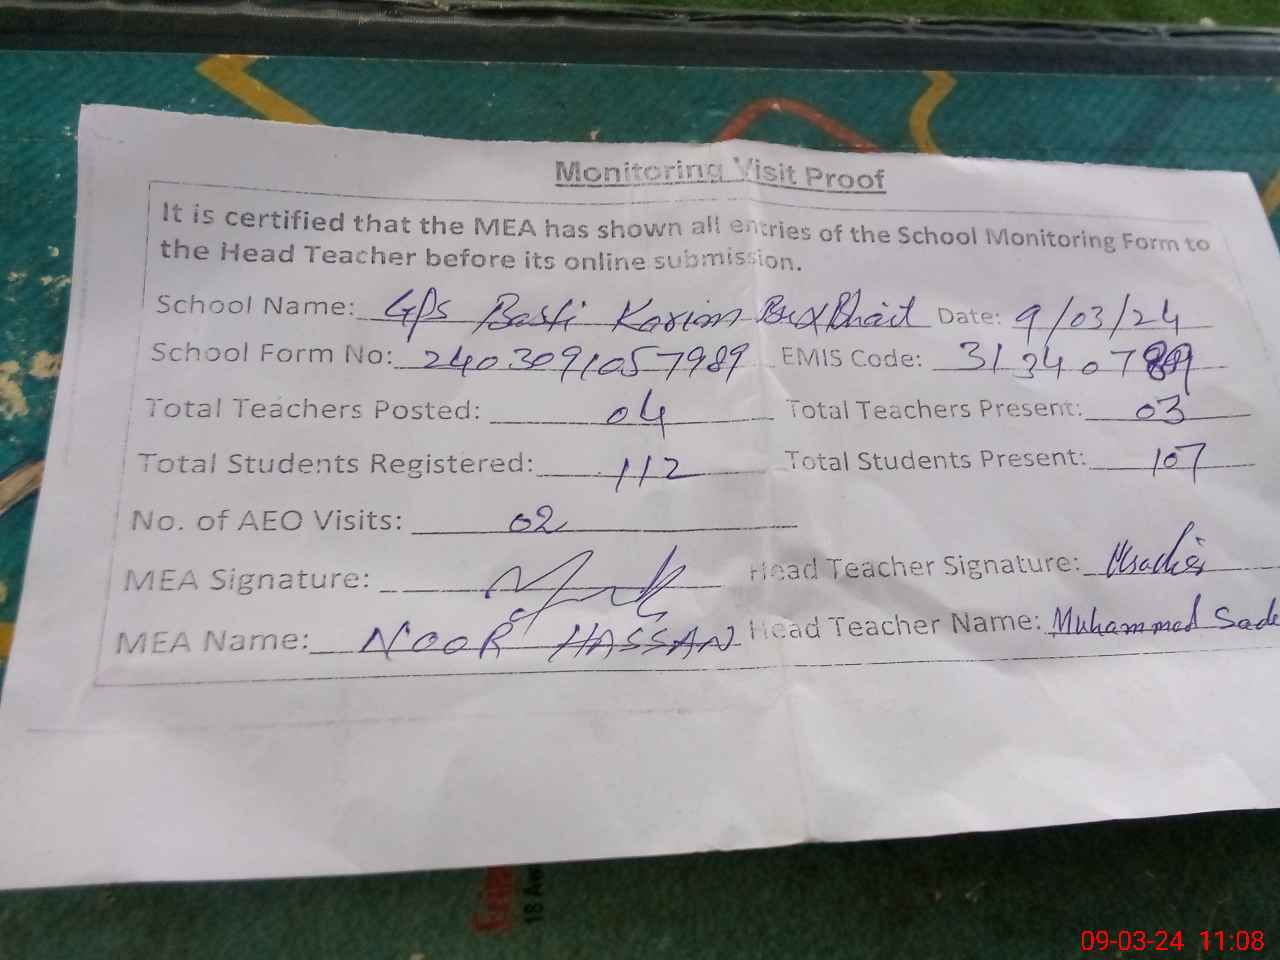 Monitoring Visit Proof
It is certified that the MEA has shown all entries of the School Monitoring Form to
the Head Teacher before its online submission.
School Name: GPS Basti Karim Bux Bhait Date: 9/03/24
School Form No: 2403091057989 EMIS Code: 31340789
Total Teachers Posted: 04 Total Teachers Present: 03
Total Students Registered: 112 Total Students Present: 107
No. of AEO Visits: 02
MEA Signature: Head Teacher Signature:
MEA Name: NOOR HASSAN Head Teacher Name: Muhammad Sade
18 Aw
09-03-24 11:08